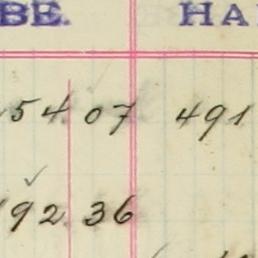 BE. HA
54.07 491
92 36